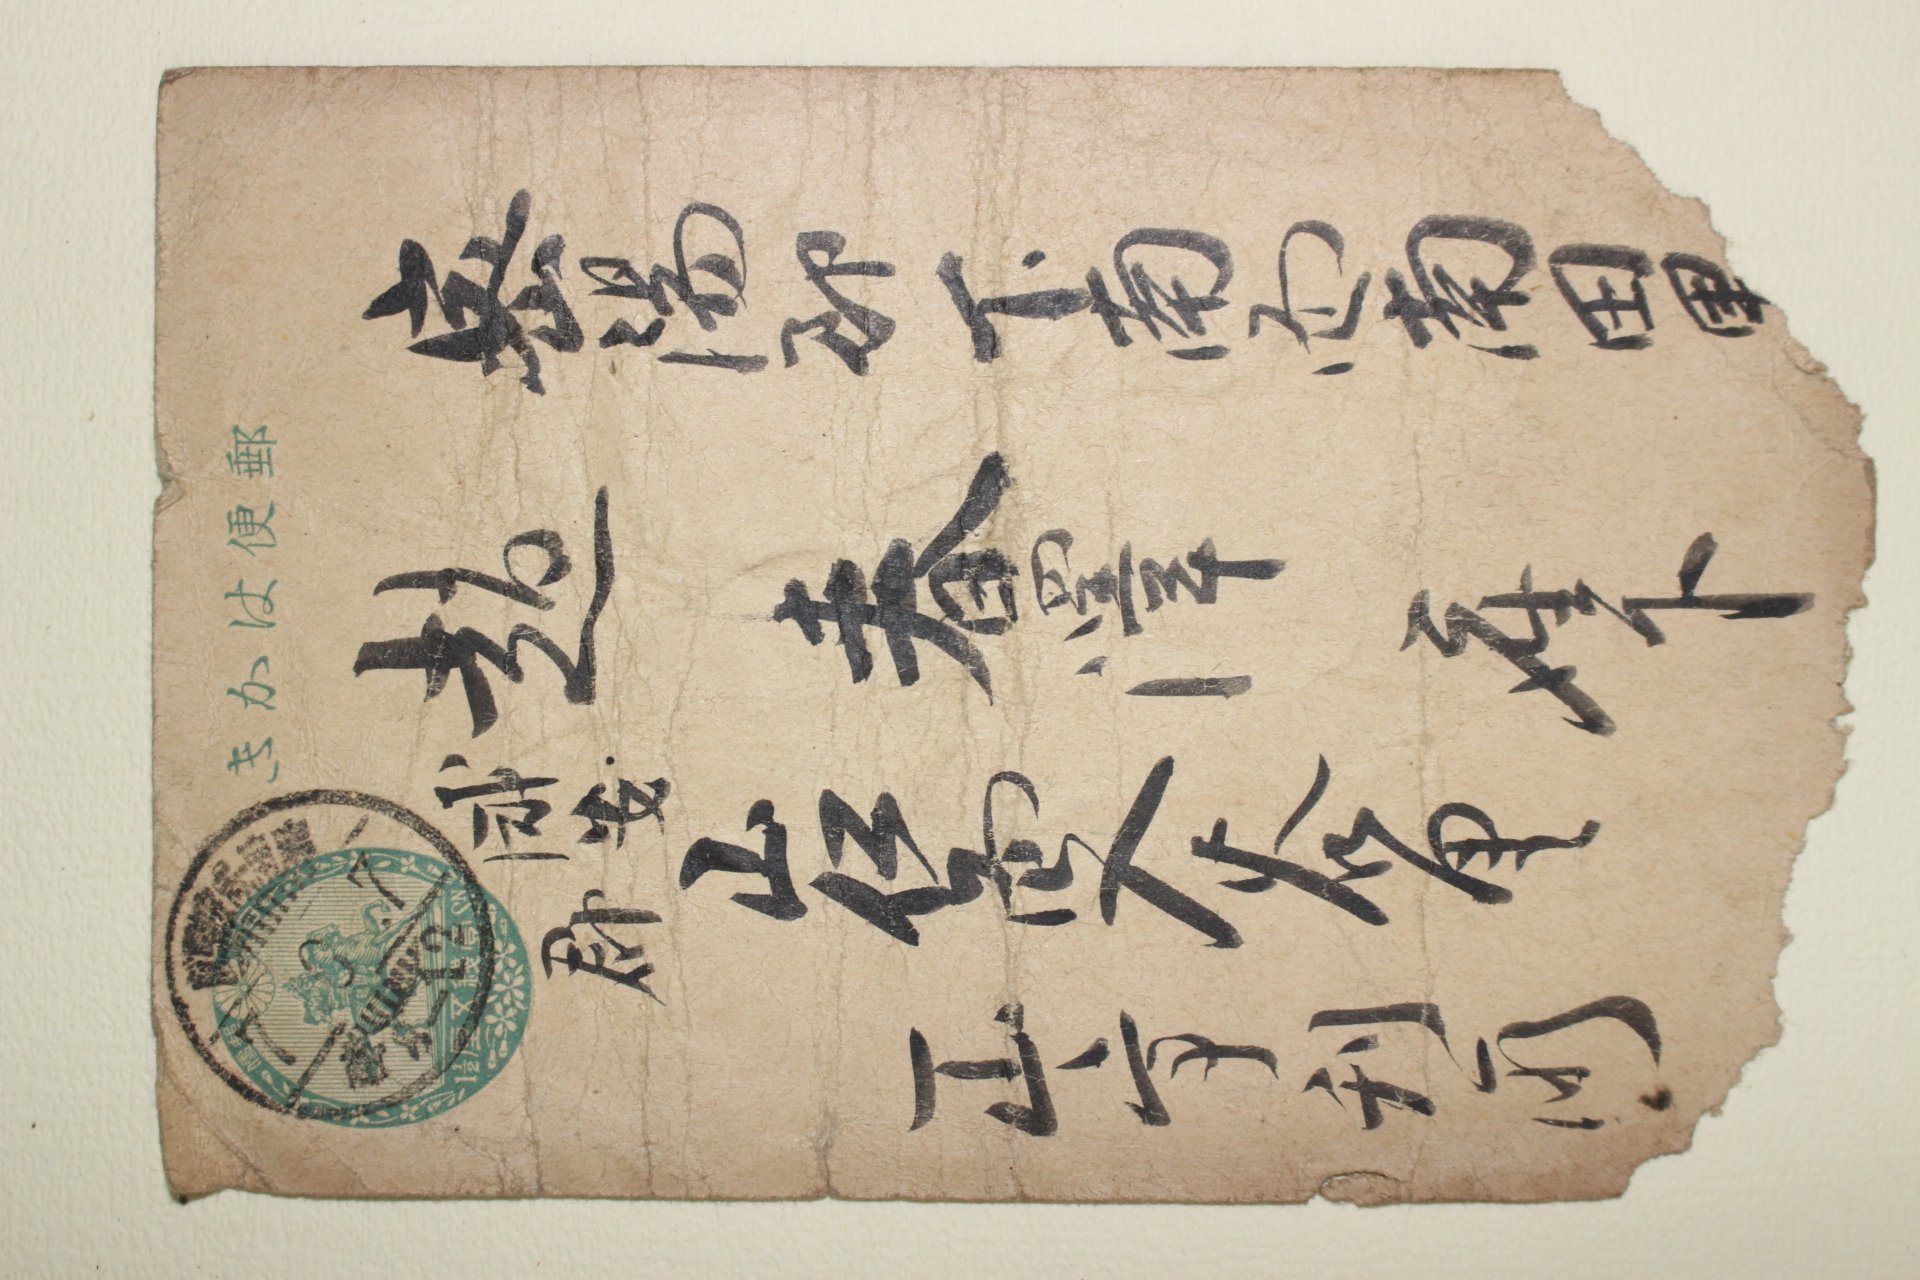 郵便はかき
壹錢五厘
1½ SN
7 3 7
12
密陽郡下南面南田里
趙 春澤 座下
咸安
郡
山仁面入谷里
山亭利所